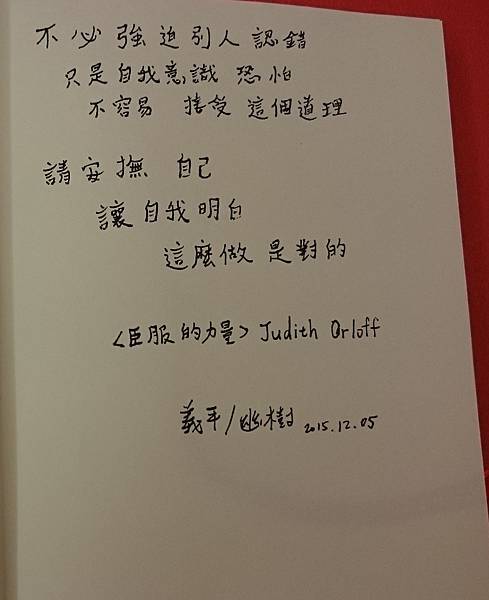 不必強迫別人認錯
只是自我意識 恐怕
不容易 接受 這個道理
請安撫 自己
讓自我明白
這麼做 是對的
<臣服的力量> Judith Orloff
義平/幽樹 2015.12.05